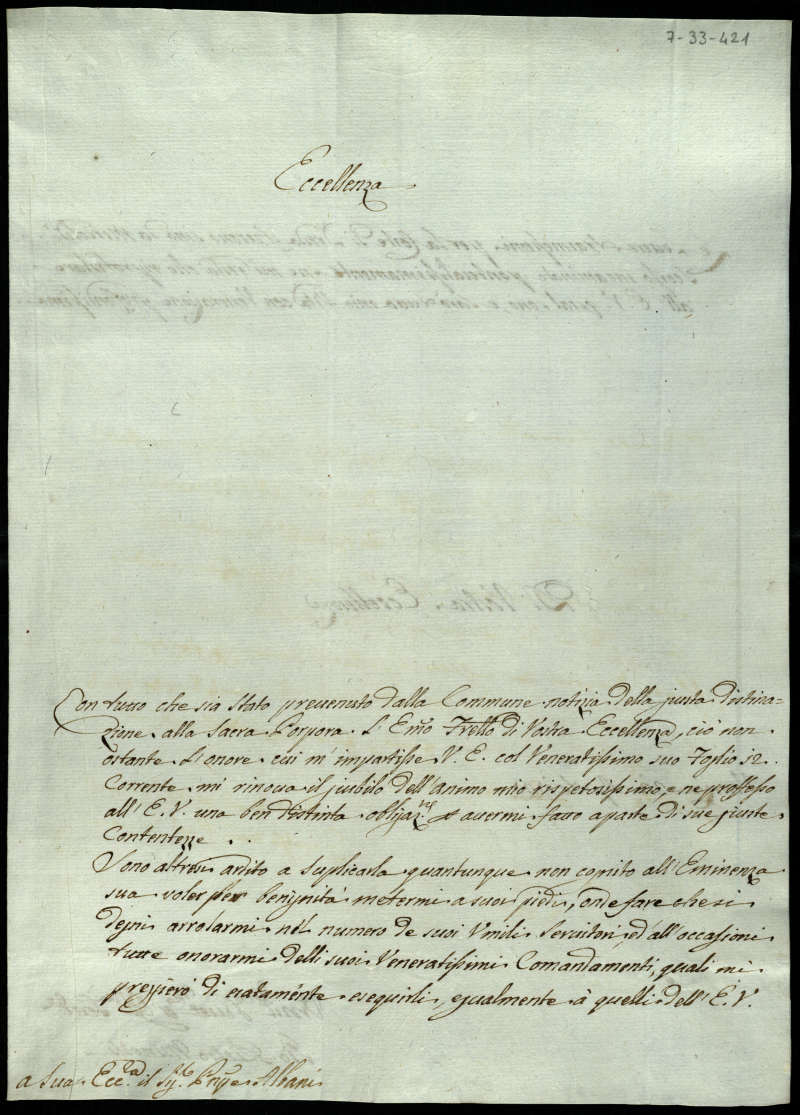 7-33-421
Eccellenza
Con tutto che sia stato prevenuto dalla Commune notizia della justa distina-
zione alla Sacra Porpora L'Emo Frello di Vostra Eccellenza, ciò non
ostante L'onore cui m'impartisse V. E. col Veneratissimo suo Foglio 12
Corrente mi rinova il jiubilo dell'animo mio rispetosissimo, e ne professo
all'E. V. una ben distinta oblijaz.ne avermi fatto a parte di sue juste
Contentezze.
Sono altresi ardito a suplicarla quantunque non cognito all'Eminenza
sua voler per benignità metermi a suoi piedi, onde fare che si
degni arrolarmi nel numero de suoi Umili Servitori, ed all'occasioni
tutte onorarmi delli suoi Veneratissimi Comandamenti, quali mi
pregierò di esatamente eseguirli, egualmente à quelli dell'E. V.
a Sua Ecc.za il Sig.r Pnpe Albani